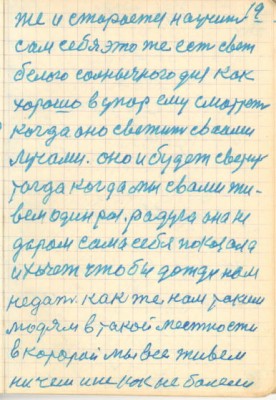 же и старается научить 19
сам себя это же есть свет
белого солнычного дня как
хорошо в упор ему смотрют
когда оно светить своими
лучами. оно и будет свецить
тогда когда мы с вами жи-
вем один раз. радуга она не
даром сама себя показала
и хочет чтобы дождя нам
недать. как же нам таким
людям в такой местности
в которой мы все живем
ни чем и не как не болеем